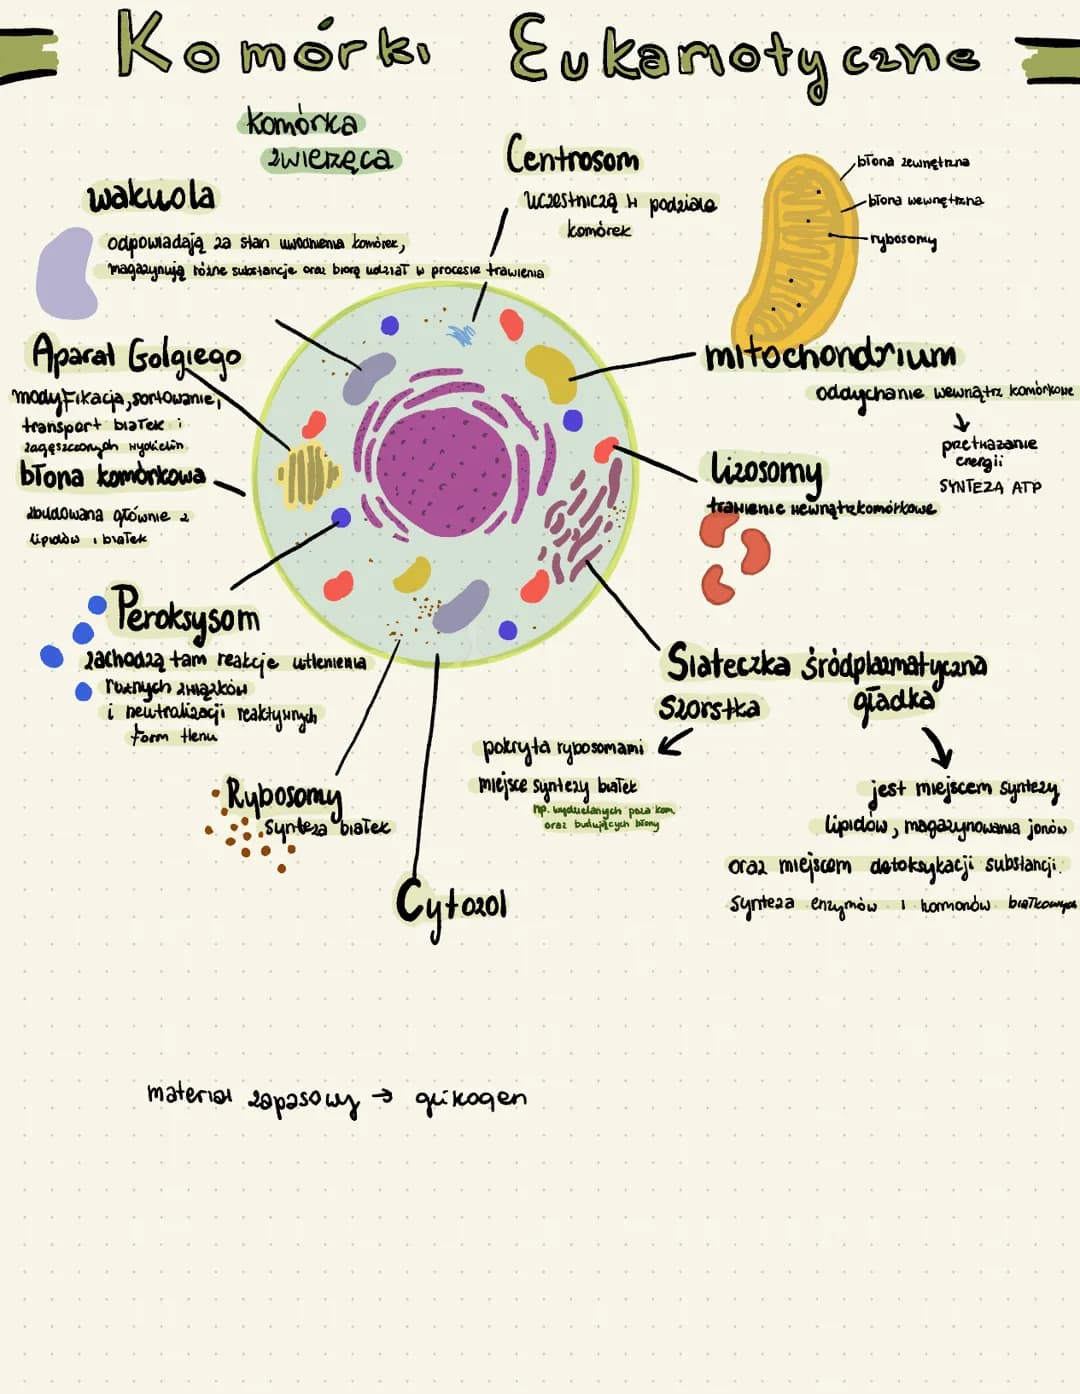 Komórki Eukariotyczne
komórka
zwierzęca
wakuola
odpowiadają za stan uwodnienia komórek,
magazynują różne substancje oraz biorą udział w procesie trawienia
Centrosom
uczestniczą w podziale
komórek
błona zewnętrzna
błona wewnętrzna
rybosomy
Aparat Golgiego
modyfikacja, sortowanie,
transport białek i
zagęszczonych wydzielin
błona komórkowa
zbudowana głównie z
lipidów i białek
mitochondrium
oddychanie wewnątrz komórkowe
↓
przetwarzanie
energii
SYNTEZA ATP
lizosomy
trawienie wewnątrzkomórkowe
Peroksysom
zachodzą tam reakcje utlenienia
różnych związków
i neutralizacji reaktywnych
form tlenu
Siateczka śródplazmatyczna
szorstka
gładka
pokryta rybosomami
miejsce syntezy białek
np. wydzielanych poza kom.
oraz budujących błony
jest miejscem syntezy
lipidów, magazynowania jonów
oraz miejscem detoksykacji substancji.
synteza enzymów i hormonów białkowych
Rybosomy
synteza białek
Cytozol
materiał zapasowy → glikogen